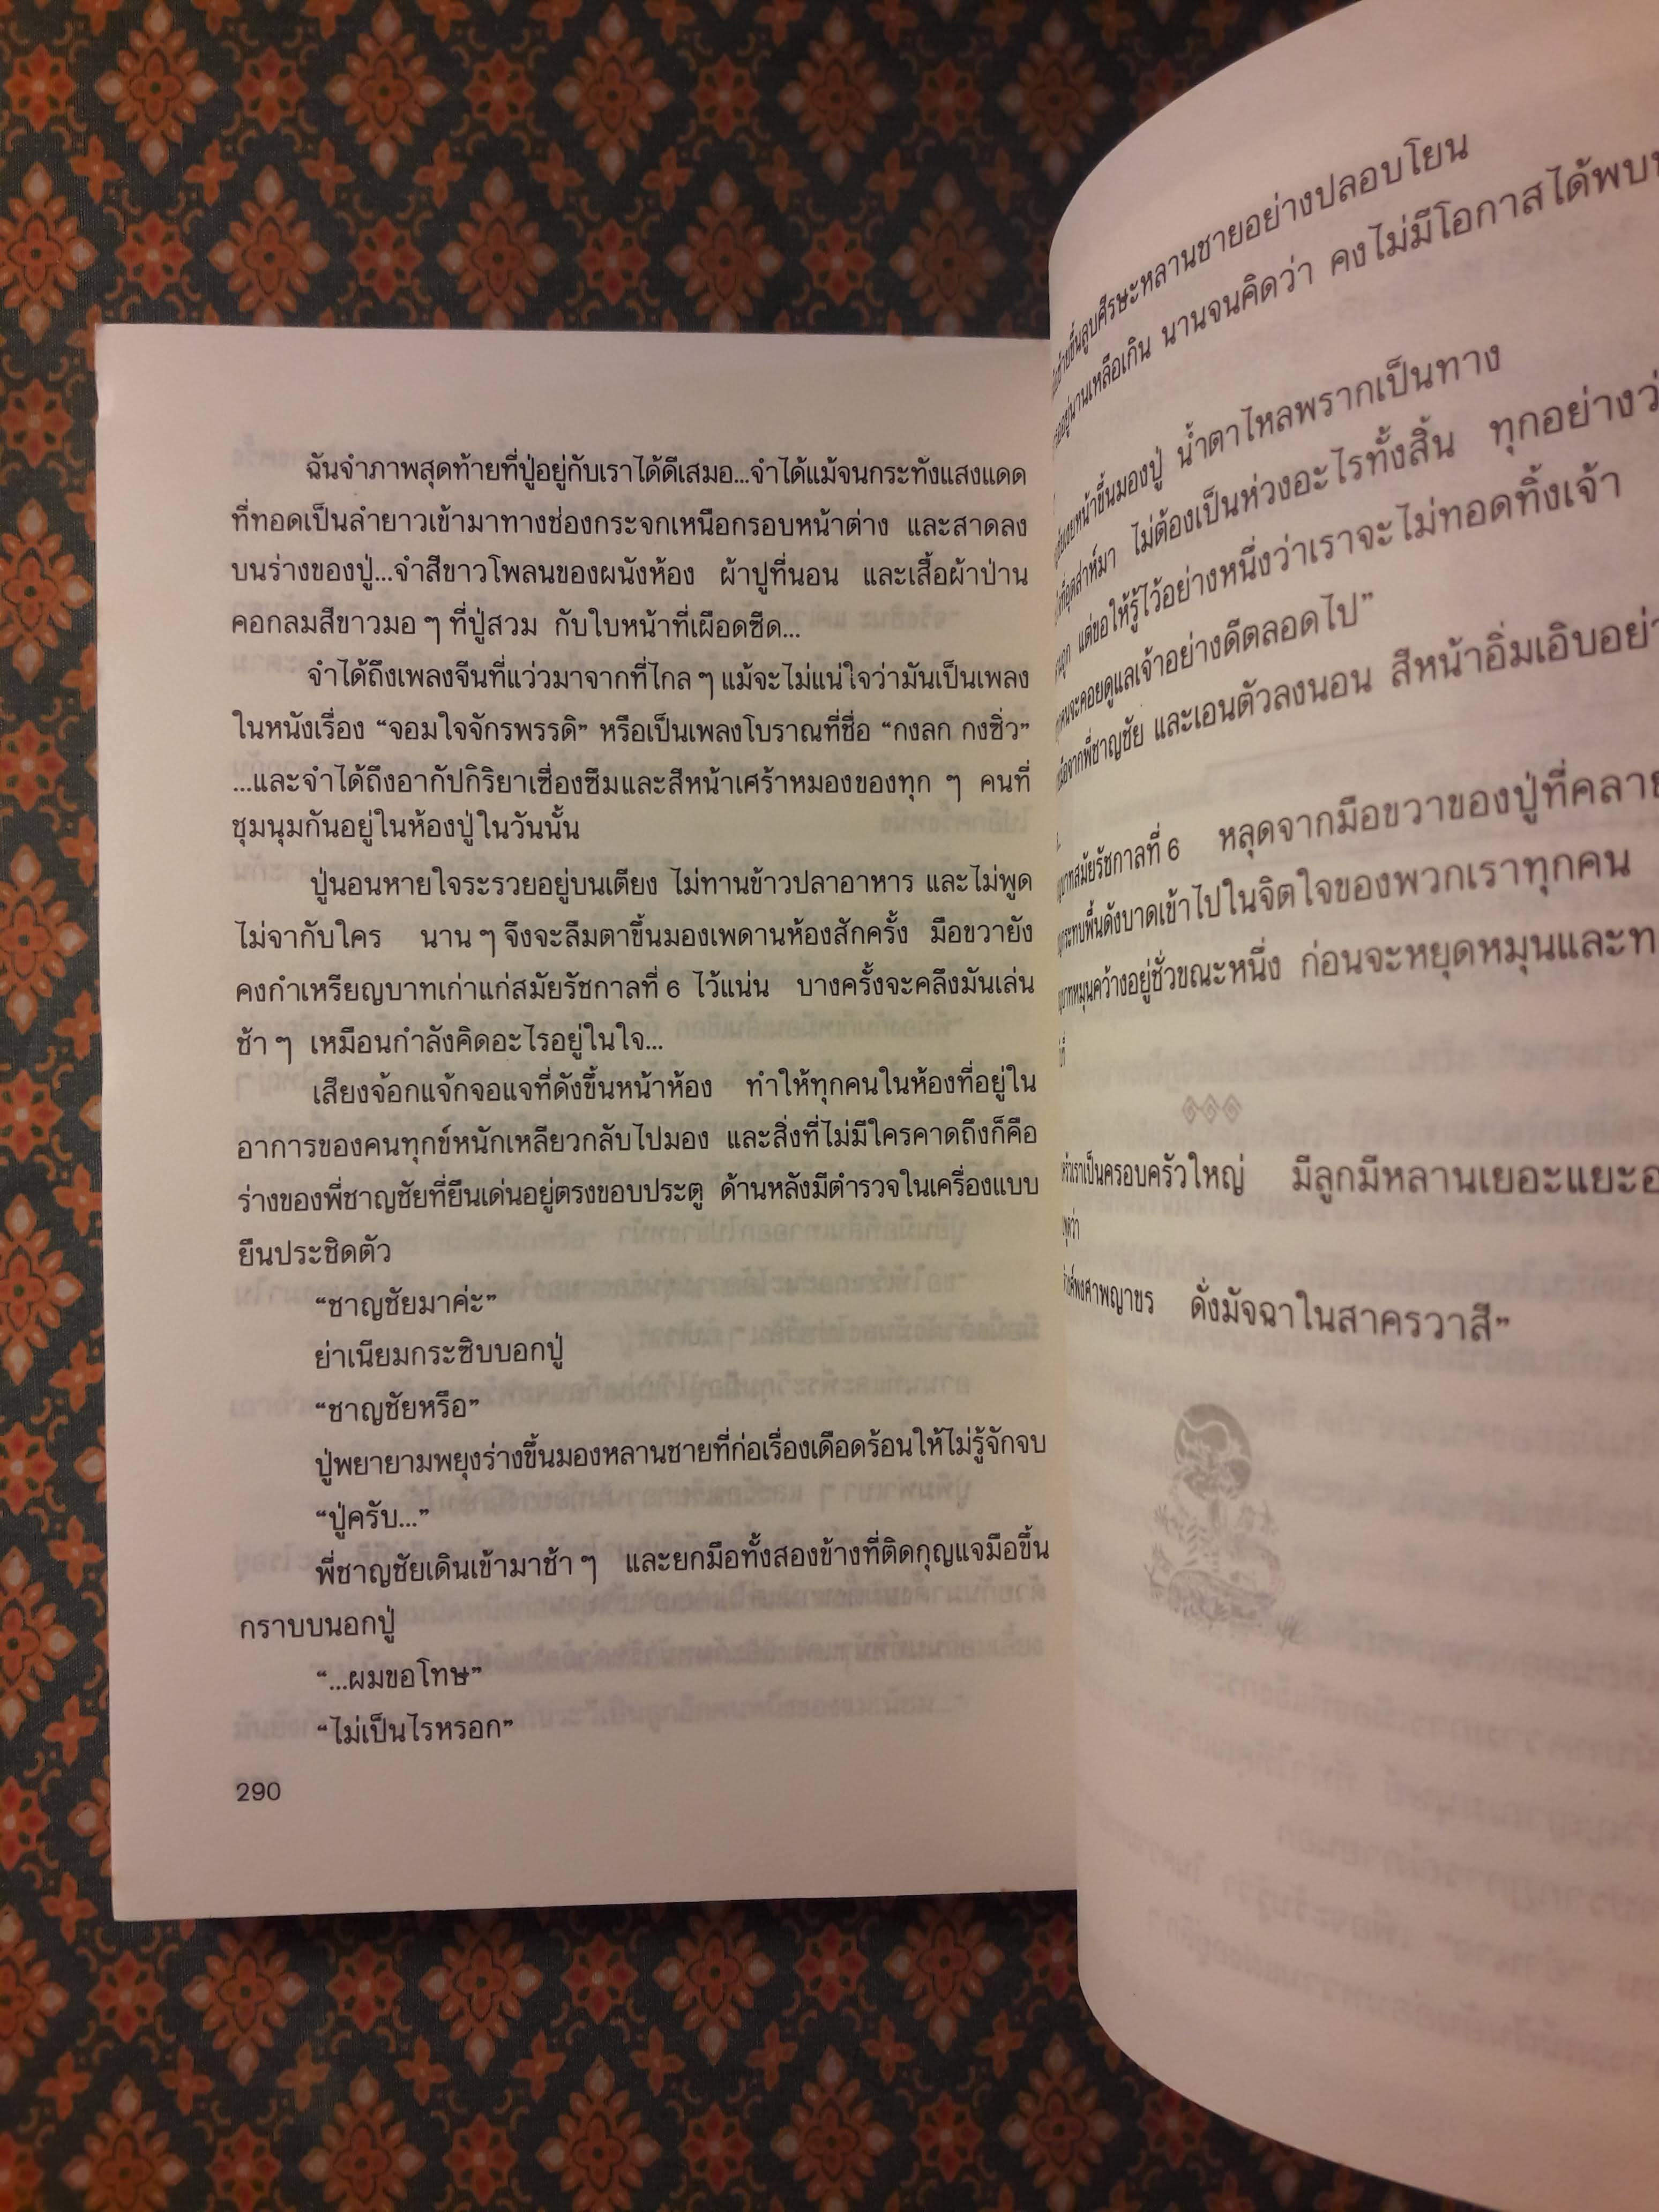 ฉันจำภาพสุดท้ายที่ปู่อยู่กับเราได้ดีเสมอ...จำได้แม้จนกระทั่งแสงแดด
ที่ทอดเป็นลำยาวเข้ามาทางช่องกระจกเหนือกรอบหน้าต่าง และสาดลง
บนร่างของปู่...จำสีขาวโพลนของผนังห้อง ผ้าปูที่นอน และเสื้อผ้าป่าน
คอกลมสีขาวมอ ๆ ที่ปู่สวม กับใบหน้าที่เผือดซีด...
จำได้ถึงเพลงจีนที่แว่วมาจากที่ไกล ๆ แม้จะไม่แน่ใจว่ามันเป็นเพลง
ในหนังเรื่อง “จอมใจจักรพรรดิ” หรือเป็นเพลงโบราณที่ชื่อ “กงลก กงซิ่ว”
...และจำได้ถึงอากัปกิริยาเซื่องซึมและสีหน้าเศร้าหมองของทุก ๆ คนที่
ชุมนุมกันอยู่ในห้องปู่ในวันนั้น
ปู่นอนหายใจระรวยอยู่บนเตียง ไม่ทานข้าวปลาอาหาร และไม่พูด
ไม่จากับใคร นาน ๆ จึงจะลืมตาขึ้นมองเพดานห้องสักครั้ง มือขวายัง
คงกำเหรียญบาทเก่าแก่สมัยรัชกาลที่ 6 ไว้แน่น บางครั้งจะคลึงมันเล่น
ช้า ๆ เหมือนกำลังคิดอะไรอยู่ในใจ...
เสียงจ้อกแจ้กจอแจที่ดังขึ้นหน้าห้อง ทำให้ทุกคนในห้องที่อยู่ใน
อาการของคนทุกข์หนักเหลียวกลับไปมอง และสิ่งที่ไม่มีใครคาดถึงก็คือ
ร่างของพี่ชาญชัยที่ยืนเด่นอยู่ตรงขอบประตู ด้านหลังมีตำรวจในเครื่องแบบ
ยืนประชิดตัว
“ชาญชัยมาค่ะ”
ย่าเนียมกระซิบบอกปู่
“ชาญชัยหรือ”
ปู่พยายามพยุงร่างขึ้นมองหลานชายที่ก่อเรื่องเดือดร้อนให้ไม่รู้จักจบ
“ปู่ครับ...”
พี่ชาญชัยเดินเข้ามาช้า ๆ และยกมือทั้งสองข้างที่ติดกุญแจมือขึ้น
กราบบนอกปู่
“...ผมขอโทษ”
“ไม่เป็นไรหรอก”
290
ขึ้นลูบศีรษะหลานชายอย่างปลอบโยน
อยู่นานเหลือเกิน นานจนคิดว่า คงไม่มีโอกาสได้พบ
เงยหน้าขึ้นมองปู่ น้ำตาไหลพรากเป็นทาง
ที่อุตส่าห์มา ไม่ต้องเป็นห่วงอะไรทั้งสิ้น ทุกอย่าง
แต่ขอให้รู้ไว้อย่างหนึ่งว่าเราจะไม่ทอดทิ้งเจ้า
จะคอยดูแลเจ้าอย่างดีตลอดไป”
จากพี่ชาญชัย และเอนตัวลงนอน สีหน้าอิ่มเอิบ
บาทสมัยรัชกาลที่ 6 หลุดจากมือขวาของปู่ที่คลาย
กระทบพื้นดังบาดเข้าไปในจิตใจของพวกเราทุกคน
บาทหมุนคว้างอยู่ชั่วขณะหนึ่ง ก่อนจะหยุดหมุนและ
เราเป็นครอบครัวใหญ่ มีลูกมีหลานเยอะแยะ
พงศาพญาขร ดั่งมัจฉาในสาครวาสี”